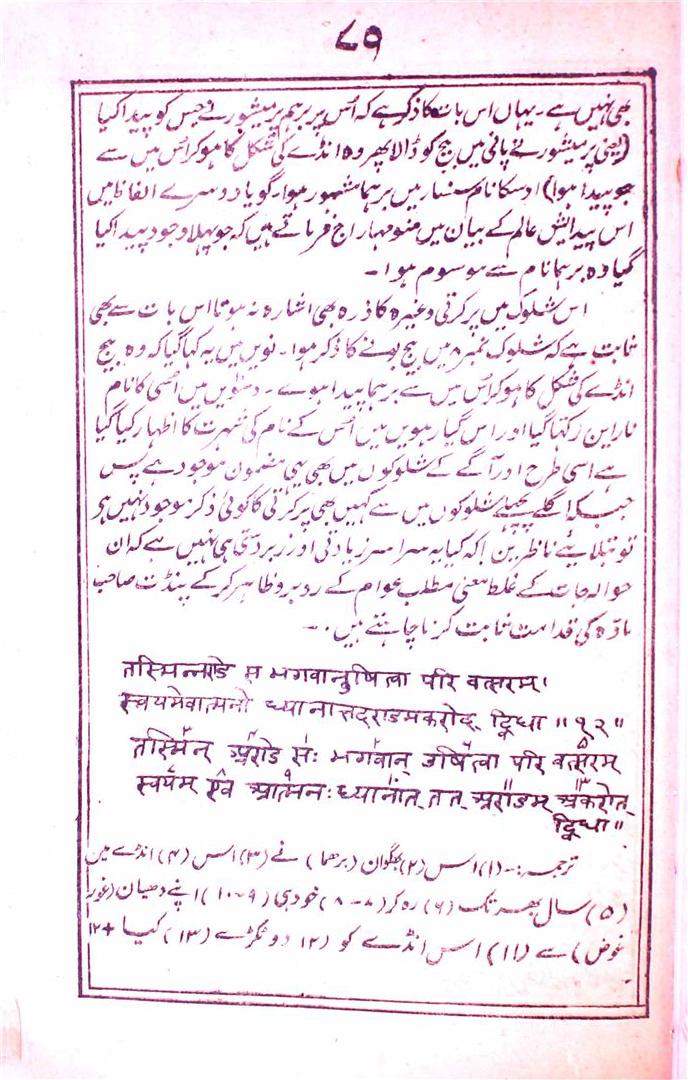 ۸۹
بھی نہیں ہے۔ یہاں اس بات کا ذکر ہے کہ اُس پربرہم پرمیشور نے جس کو پیدا کیا
(یعنی پرمیشور نے پانی میں بیج کو ڈالا پھر وہ انڈے کی شکل کا ہوکر اس میں سے
جو پیدا ہوا) اوسکا نام سنسار میں برہما مشہور ہوا۔ گویا دوسرے الفاظ میں
اس پیدایش عالم کے بیان میں منو مہاراج فرماتے ہیں کہ جو پہلا وجود پیدا کیا
گیا وہ برہما نام سے موسوم ہوا۔
اس شلوک میں پرکرتی وغیرہ کا ذرہ بھی اشارہ نہ ہونا اس بات سے بھی
ثابت ہے کہ شلوک نمبر ۸ میں بیج بونے کا ذکر ہوا۔ نویں میں یہ کہا گیا کہ وہ بیج
انڈے کی شکل کا ہوکر اُس میں سے برہما پیدا ہوے۔ دسویں میں اُسی کا نام
نارین رکہا گیا اور اس گیارہویں میں اُس کے نام کی شہرت کا اظہار کیا گیا
ہے اسی طرح اور آگے کے شلوکوں میں بھی یہی مضمون موجود ہے پس
جبکہ اگلے پچھلے شلوکوں میں سے کہیں بھی پرکرتی کا کوئی ذکر موجود نہیں ہے
تو بتلائیے ناظرین! کہ کیا یہ سراسر زیادتی اور زبردستی ہی نہیں ہے کہ ان
حوالہ جات کے غلط معنی مطلب عوام کے روبرو ظاہر کرکے پنڈت صاحب
مادّہ کی قدامت ثابت کرنا چاہتے ہیں۔
तस्मिन्नराडे स भगवानुषित्वा परि वत्सरम्।
स्वयमेवात्मनो ध्यानात्तदराडमकरोद् द्विधा॥१२॥
तस्मिन् अराडे सः भगवान् उषित्वा परि वत्सरम्
स्वयम् एव आत्मनः ध्यानात् तत् अराडम् अकरोत्
द्विधा॥
ترجمہ:۔ (۱) اس (۲) بھگوان (برھما) نے (۳) اس (۴) انڈے میں
(۵) سال بھر تک (۶) رہ کر (۷-۸) خود ہی (۹-۱۰) اپنے دھیان (غور
غوض) سے (۱۱) اس انڈے کو (۱۲) دو ٹکڑے (۱۳) کیا +۱۲